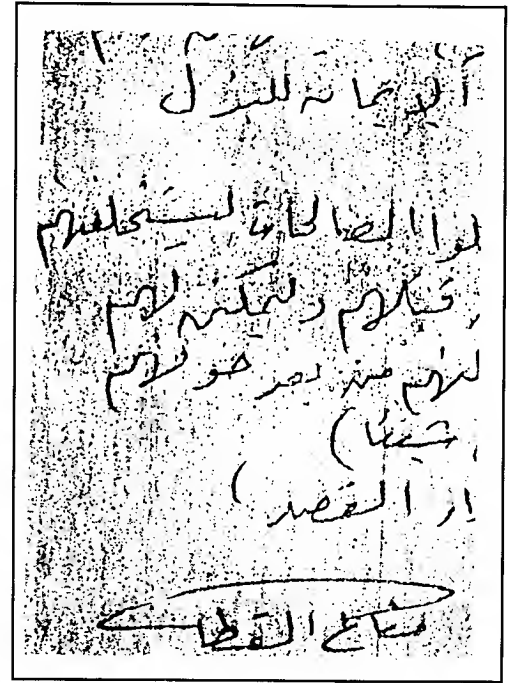 لوا الصالحات ليستخلفنهم
قبلهم وليمكنن لهم
لنهم من بعد خوفهم
شيئا)
القصد )
مناع القطان